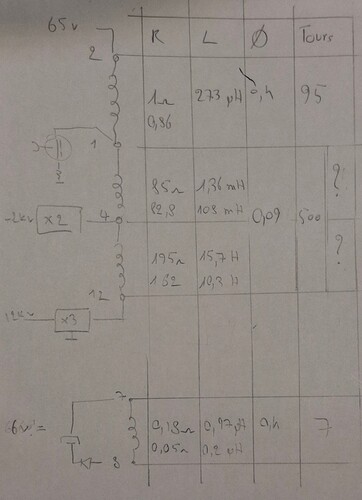 65v
R L Ø Tours
2
1Ω 273 µH 0,4 95
0,86
1
85Ω 1,36 mH ?
82,8 108 mH
-2kv x2 4 0,09 500
195Ω 15,7 H ?
182 10,3 H
12
12kv x3
7
6v = 0,18Ω 0,97µH 0,4 7
0,05Ω 0,2 µH
8